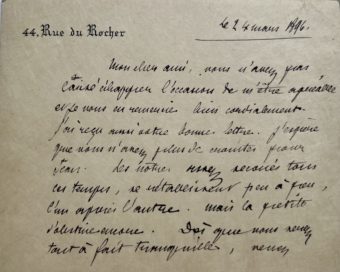 44, Rue du Rocher
le 24 mars 1896.
Mon cher ami, vous n'avez pas
laissé échapper l'occasion de m'être agréable
et je vous en remercie bien cordialement.
J'ai reçu aussi votre bonne lettre. J'espère
que vous n'avez plus de craintes pour
Jean. Les nôtres, assez secoués tous
ces temps, se rétablissent peu à peu,
l'un après l'autre. Mais la petite
tousse encore. Dès que vous serez
tout à fait tranquille, venez